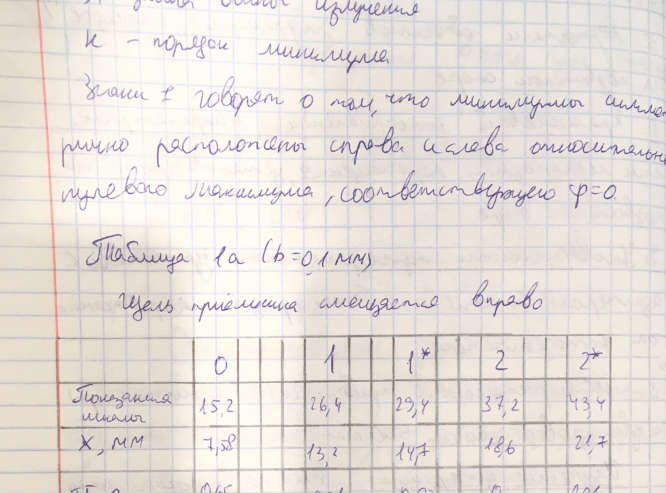 длина волны излучения
к – порядок минимума
Знаки ± говорят о том, что минимумы симмет
рично расположены справа и слева относительно
нулевого максимума, соответствующего φ=0.
Таблица 1а (b=0,1мм)
Щель приёмника смещается вправо
0 1 1* 2 2*
Показания шкалы 15,2 26,4 29,4 37,2 43,4
x, мм 7,58 13,2 14,7 18,6 21,7